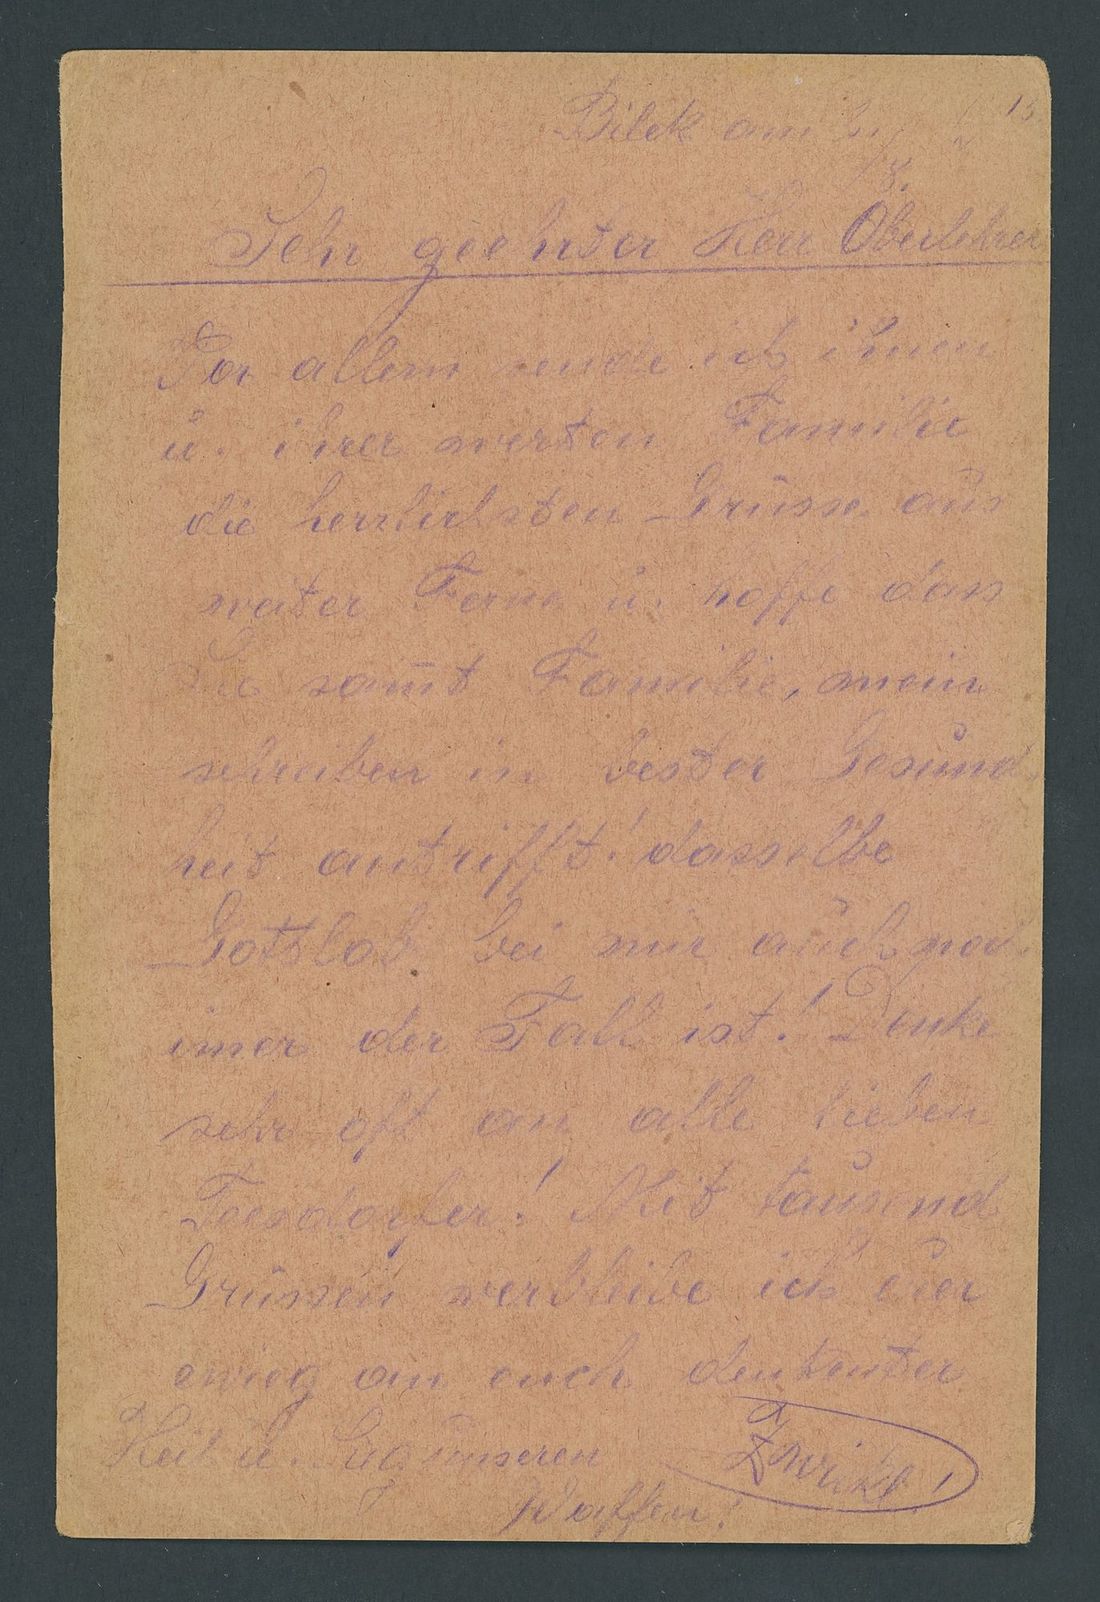 Bilek am
Sehr geehrter Herr Oberlehrer
Vor allem sende ich ihnen
u. ihrer werten Familie
die herzlichsten Grüsse aus
weiter Ferne u. hoffe das
Sie sam̅t Familie, mein
schreiben in bester Gesund
heit antrifft! dasselbe
Gotslob bei mir auch noch
imer der Fall ist! Denke
sehr oft an alle lieben
Teesdorfer! Mit tausend
Grüssen verbleibe ich euer
ewieg an euch denkenter
Heil u. unseren Zwickl!
Waffen!